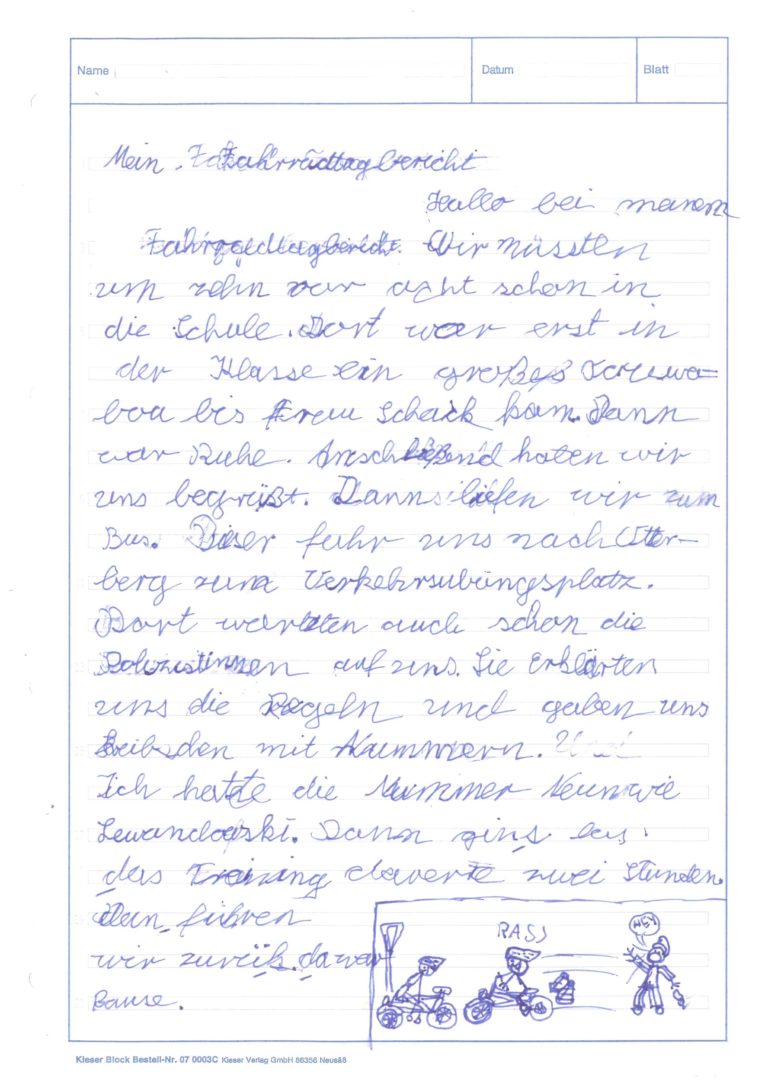 Name
Datum
Blatt
Mein Fahrradtagbericht
Hallo bei meinem
Fahrradtagbericht. Wir müssten
um zehn vor acht schon in
die Schule. Dort war erst in
der Klasse ein großes Touwa=
bou bis Frau Schack kam. Dann
war Ruhe. Anschließend haten wir
uns begrüßt. Dann liefen wir zum
Bus. Dieser fuhr uns nach Otter-
berg zum Verkehrsübungsplatz.
Dort warteten auch schon die
Polizistinnen auf uns. Sie Erklärten
uns die Regeln und gaben uns
mit Nummern.
Ich hatte die Nummer Neun wie
Lewandowski. Dann gins los.
das Training dauerte zwei Stunden.
Dan führen
wir zurük. da war
Bause.
RASS
HEY
Kieser Block Bestell-Nr. 07 0003C Kieser Verlag GmbH 86356 Neusäß